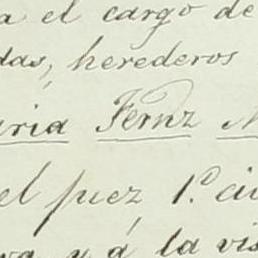 a el cargo de
das, herederos
aria Fernz M
el juez 1.º ci
va y á la vis